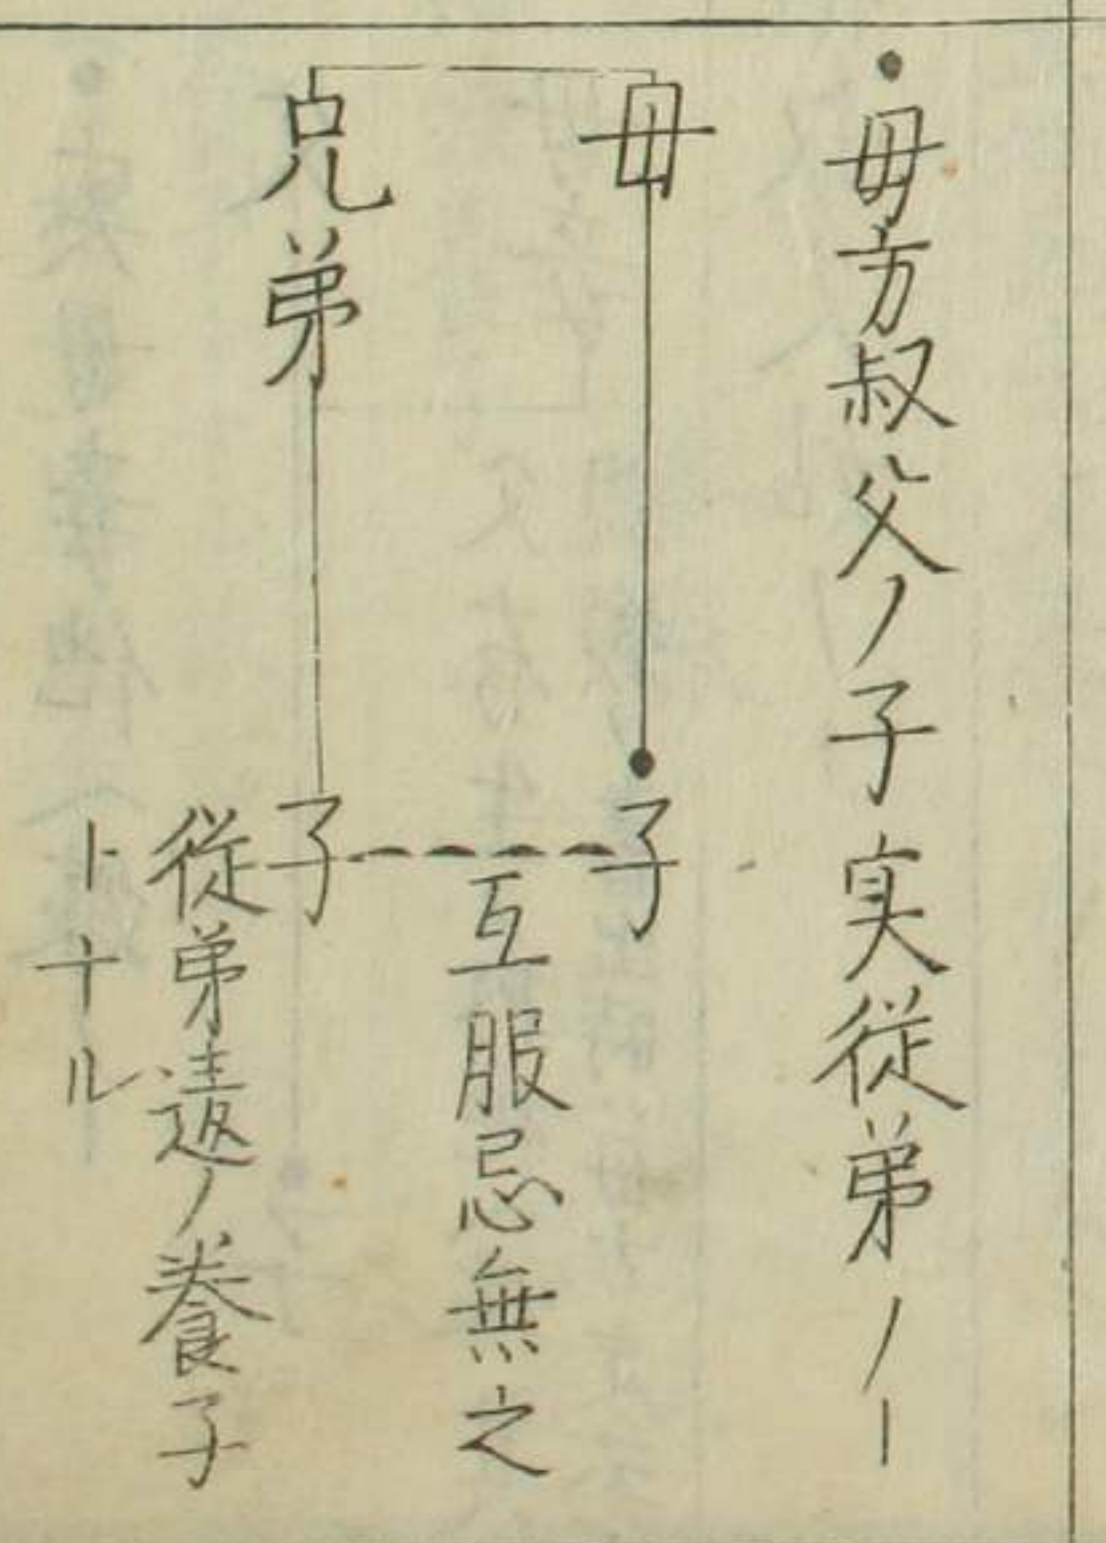 ●母方叔父ノ子実従弟ノー
母
子
互服忌無之
兄弟
子
従弟遠ノ養子
トナル